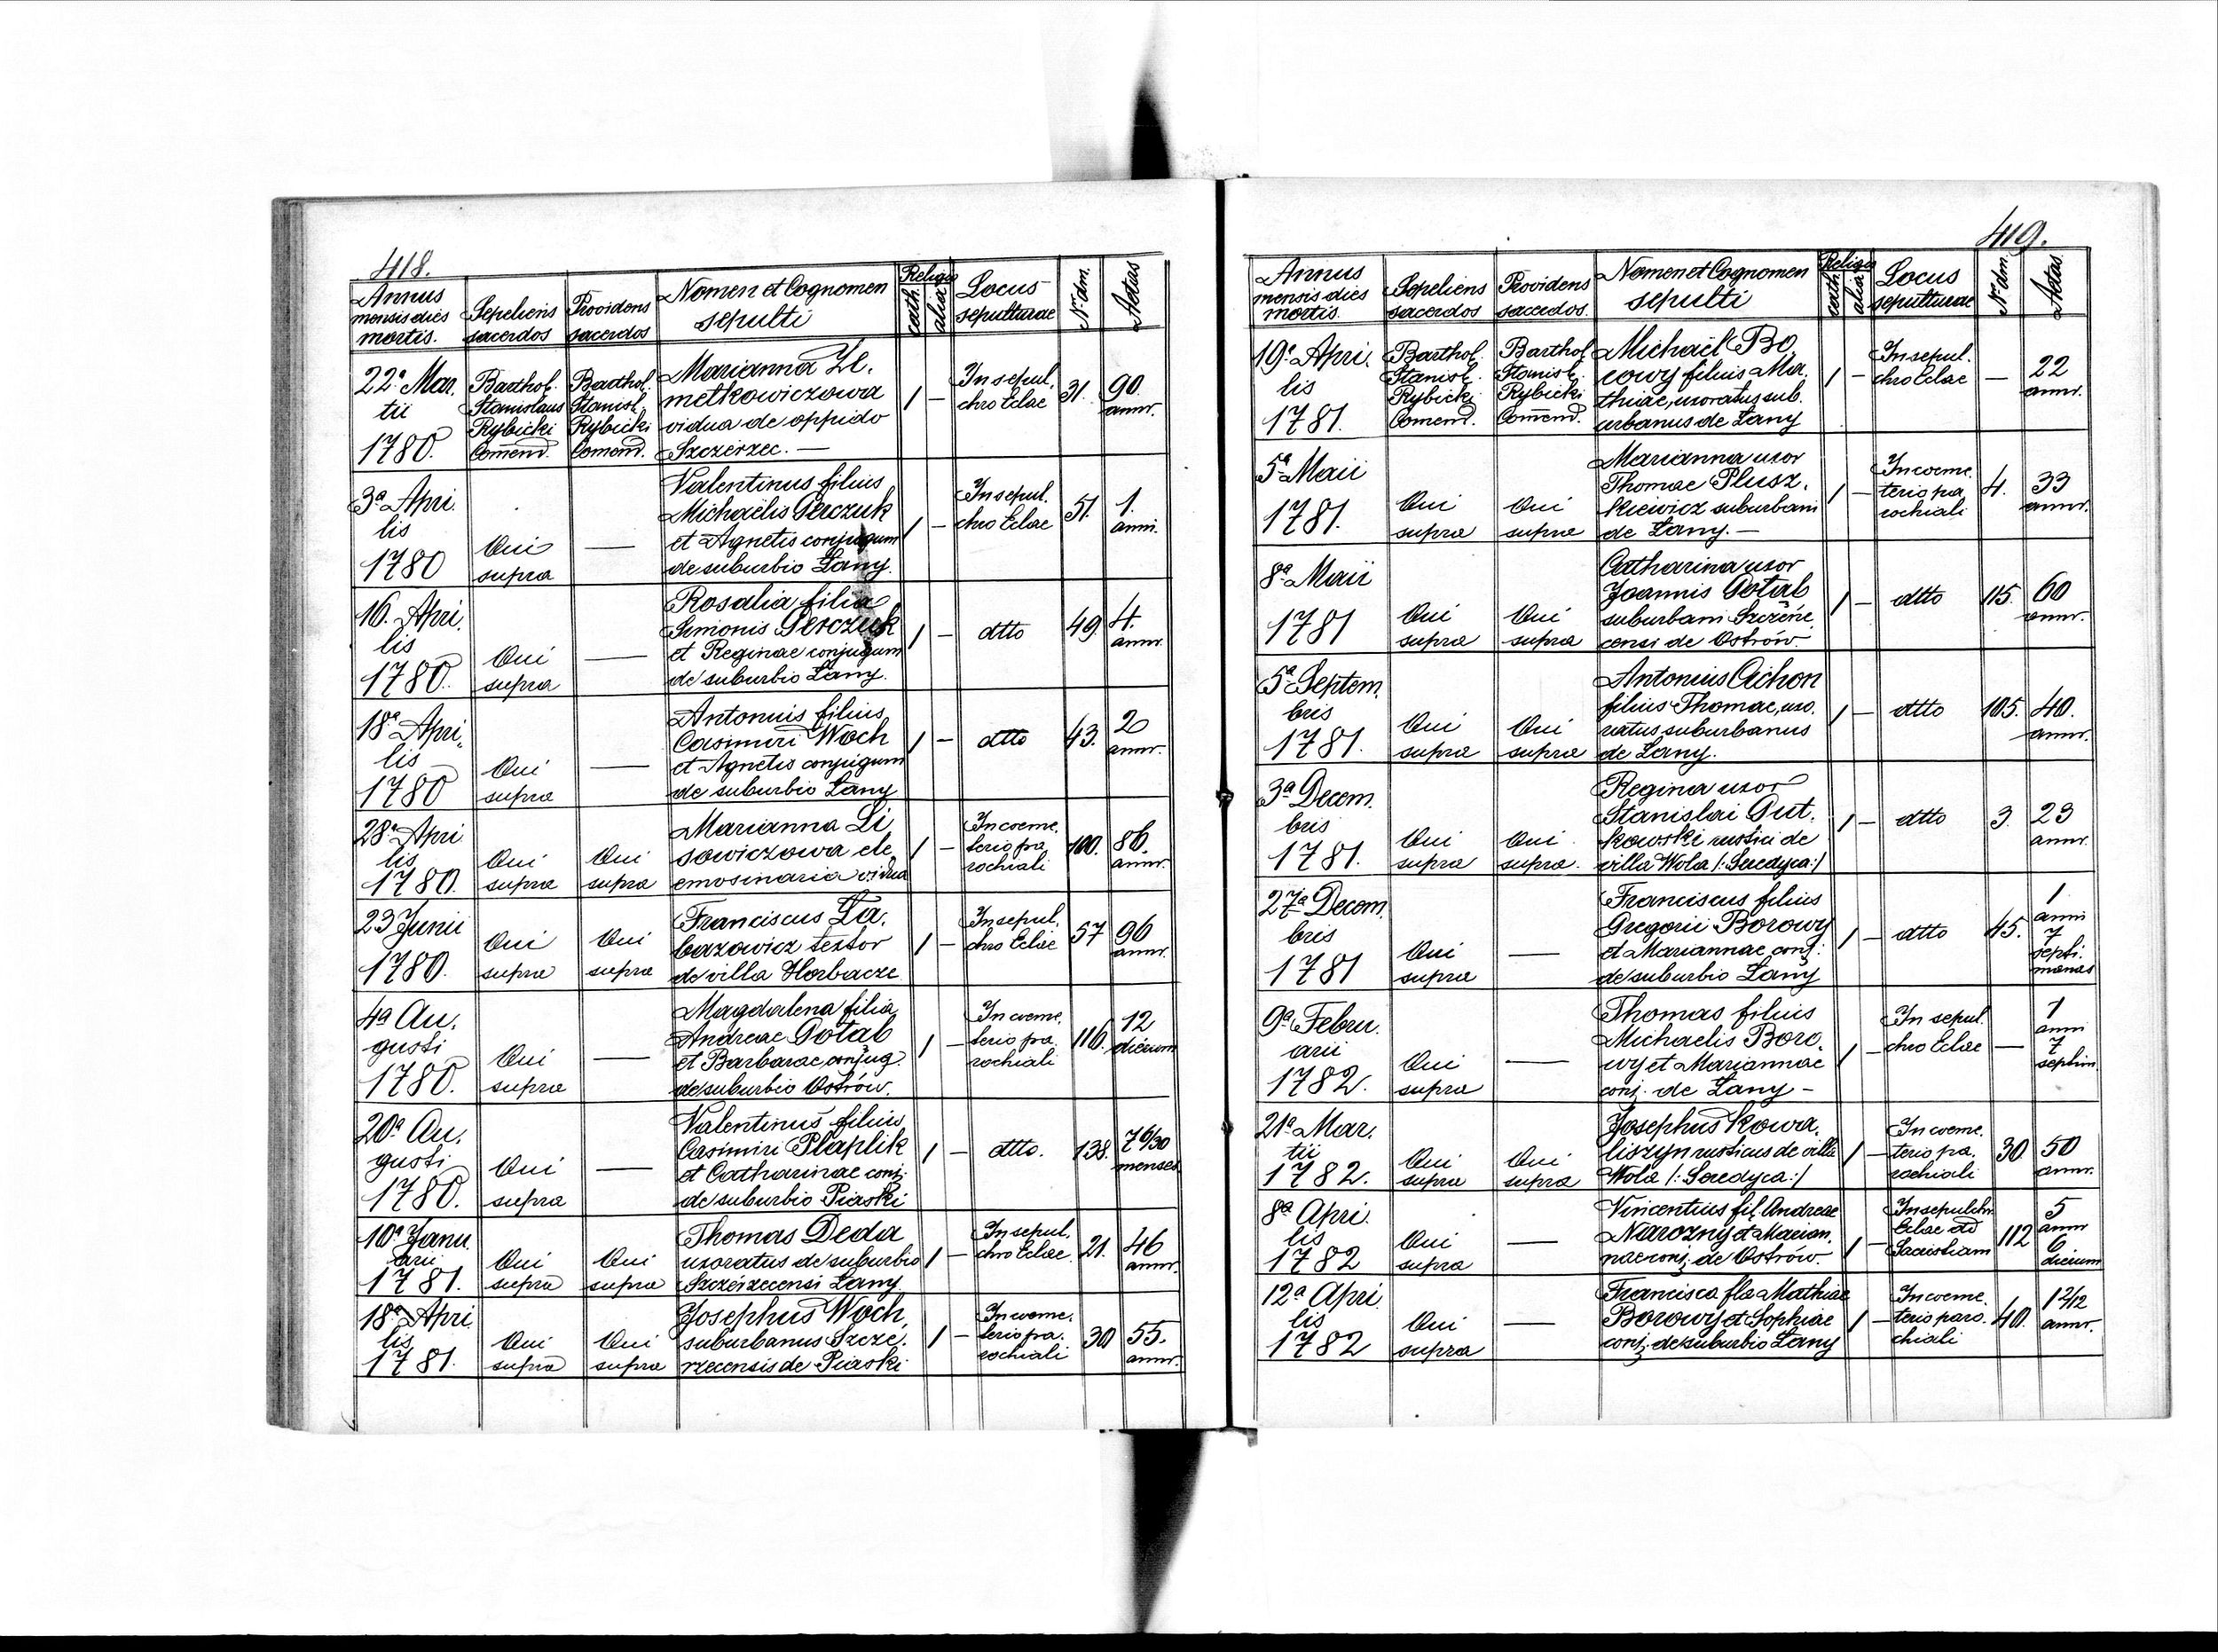 418.
Annus mensis dies mortis. Sepeliens sacerdos Providens sacerdos Nomen et Cognomen sepulti Religio cath. alia Locus sepulturae Nr. dm. Aetas
22a Mar.
tii
1780.
Barthol.
Stanislaus
Rybicki
Comend.
Barthol.
Stanisl.
Rybicki
Comend.
Marianna
metkowiczowa
vidua de oppido
Szczerzec. —
1 —
In sepul.
chro Eclae
31.
90.
annr.
3a Apri.
lis
1780
Qui
supra
—
Valentinus filius
Michaëlis Perczuk
et Agnetis conjugum
de suburbio Łany.
1 —
In sepul.
chro Eclae
51.
1.
anni.
16. Apri.
lis
1780.
Qui
supra
—
Rosalia filia
Simonis Perczuk
et Reginae conjugum
de suburbio Łany.
1 —
dtto
49.
4.
annr.
18a Apri.
lis
1780
Qui
supra
—
Antonius filius
Casimiri Woch
et Agnetis conjugum
de suburbio Łany
1 —
dtto
43.
2
annr.
28a Apri
lis
1780.
Qui
supra
Qui
supra
Marianna Li
sowiczowa ele
emosinaria vidua
1 —
In coeme.
terio pa
rochiali
100.
86.
annr.
23 Junii
1780.
Qui
supra
Qui
supra
Franciscus Ła.
bazowicz textor
de villa Horbacze
1 —
In sepul.
chro Eclae
57
96
annr.
4a Au.
gusti
1780.
Qui
supra
—
Magdalena filia
Andreae Gołab
et Barbarae conjug.
de suburbio Ostrów.
1 —
In coeme.
terio pa.
rochiali
116.
12
dierum
20a Au.
gusti
1780.
Qui
supra
—
Valentinus filius
Casimiri Płaplik
et Catharinae conj.
de suburbio Piaski
1 —
dtto.
138.
7 6/30
menses
10a Janu
arii
1781.
Qui
supra
Qui
supra
Thomas Deda
uxoratus de suburbio
Szczerzecensi Łany
1 —
In sepul.
chro Eclae.
21.
46
annr.
18a Apri.
lis
1781.
Qui
supra
Qui
supra
Josephus Woch,
suburbanus Szcze.
rzecensis de Piaski
1 —
In coeme.
terio pa.
rochiali
30
55.
annr.
419.
Annus mensis dies mortis. Sepeliens sacerdos Providens sacerdos. Nomen et Cognomen sepulti Religio cath. alia Locus sepulturae Nr. dm. Aetas
19a Apri.
lis
1781.
Barthol.
Stanisl.
Rybicki
Comend.
Barthol.
Stanisl.
Rybicki
Comend.
Michaël Bo.
rowy filius Ma.
thiae, uxoratus sub.
urbanus de Łany
1 —
In sepul.
chro Eclae
—
22
annr.
5a Maii
1781.
Qui
supra
Qui
supra
Marianna uxor
Thomae Plusz.
kiewicz suburbani
de Łany. —
1 —
In coeme.
terio pa.
rochiali
4.
33
annr.
8a Maii
1781
Qui
supra
Qui
supra
Catharina uxor
Joannis Gołab
suburbani
censi de Ostrów.
1 —
dtto
115.
60
annr.
5a Septem.
bris
1781.
Qui
supra
Qui
supra
Antonius Cichon
filius Thomae, uxo.
ratus suburbanus
de Łany.
1 —
dtto
105.
40.
annr.
3a Decem.
bris
1781.
Qui
supra
Qui
supra.
Regina uxor
Stanislai Gut.
kowski rustici de
villa Wola /:Seredyca:/
1 —
dtto
3.
23
annr.
27a Decem.
bris
1781
Qui
supra
—
Franciscus filius
Gregorii Borowy
et Mariannae conj:
de suburbio Łany
1 —
dtto
45.
1
anni
7
septi.
manas
9a Febru.
arii
1782.
Qui
supra
—
Thomas filius
Michaelis Boro.
wy et Mariannae
conj. de Łany —
1 —
In sepul.
chro Eclae
—
1
anni
7
septim.
21a Mar.
tii
1782.
Qui
supra
Qui
supra
Josephus Kowa.
liszyn rusticus de villa
Wola /:Seredyca:/
1 —
In coeme.
terio pa.
rochiali
30
50
annr.
8a Apri.
lis
1782
Qui
supra
—
Vincentius fil. Andreae
Narozny et Marian.
nae conj. de Ostrów.
1 —
In sepulchr.
Eclae ad
Sacristiam
112
5
annr
6
dierum
12a Apri.
lis
1782
Qui
supra
—
Francisca fla Mathiae
Borowy et Sophiae
conj. de suburbio Łany
1 —
In coeme.
terio paro.
chiali
40.
1 2/12
annr.